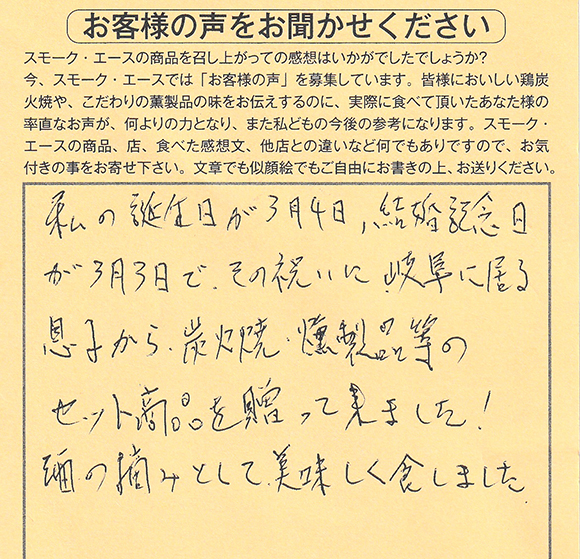 お客様の声をお聞かせください
スモーク・エースの商品を召し上がっての感想はいかがでしたでしょうか?
今、スモーク・エースでは「お客様の声」を募集しています。皆様においしい鶏炭
火焼や、こだわりの薫製品の味をお伝えするのに、実際に食べて頂いたあなた様の
率直なお声が、何よりの力となり、また私どもの今後の参考になります。スモーク・
エースの商品、店、食べた感想文、他店との違いなど何でもありですので、お気
付きの事をお寄せ下さい。文章でも似顔絵でもご自由にお書きの上、お送りください。
私の誕生日が3月4日,結婚記念日
が3月3日で、その祝いに、岐阜に居る
息子から、炭火焼・燻製品等の
セット商品を贈って来ました!
酒の摘みとして、美味しく食しました